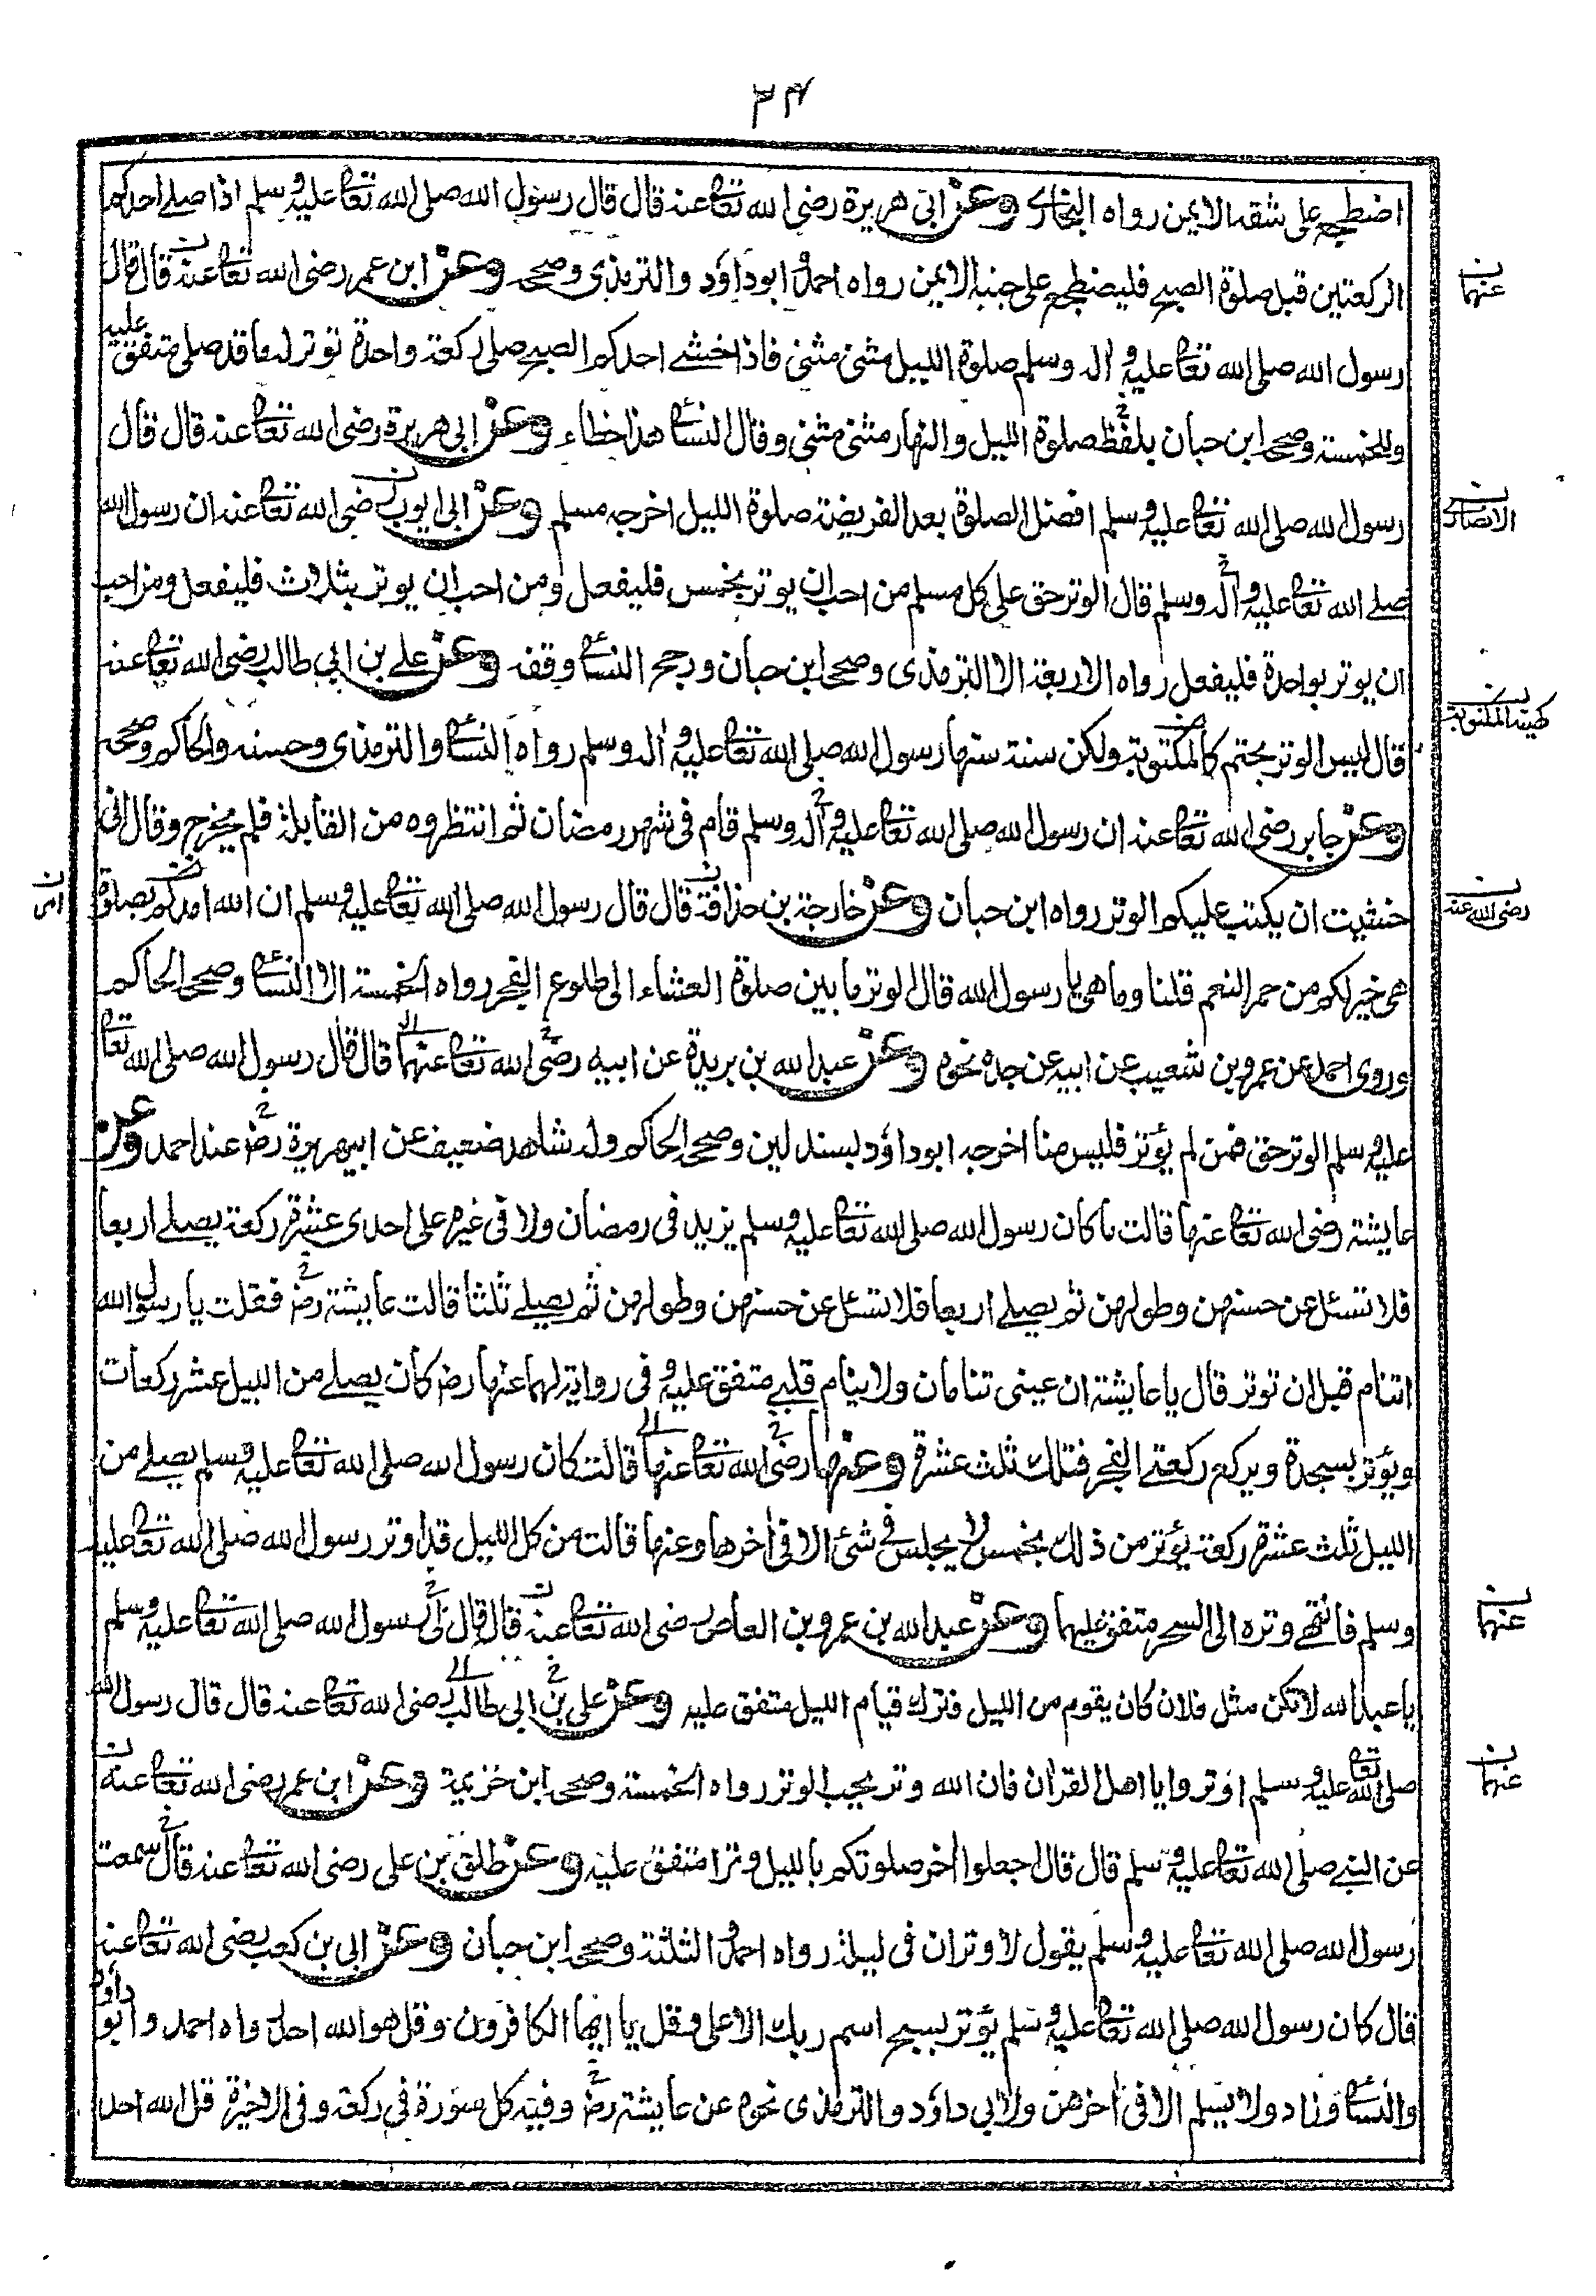 ٢٤
اضطجع على شقه الايمن رواه البخارى وعن ابى هريرة رضى الله تعالى عنه قال قال رسول الله صلى الله تعالى عليه وسلم اذا صلے احدكم
الركعتين قبل صلوة الصبح فليضطجع على جنبه الايمن رواه احمد وابوداؤد والترمذى وصححه وعن ابن عمر رضى الله تعالى عنه قال قال
عنهما
رسول الله صلى الله تعالى عليه واله وسلم صلوة الليل مثنى مثنى فاذا خشے احدكم الصبح صلى ركعة واحدة توتر له ما قد صلى متفق عليه
وللخمسة وصححه ابن حبان بلفظ صلوة الليل والنهار مثنى مثنى وقال النسائى هذا خطاء وعن ابى هريرة رضى الله تعالى عنه قال قال
رسول الله صلى الله تعالى عليه وسلم افضل الصلوة بعد الفريضة صلوة الليل اخرجه مسلم وعن ابى ايوب رضى الله تعالى عنه ان رسول الله
الانصارى
صلے الله تعالى عليه وآله وسلم قال الوتر حق على كل مسلم من احب ان يوتر بخمس فليفعل ومن احب ان يوتر بثلاث فليفعل ومن احب
ان يوتر بواحدة فليفعل رواه الاربعة الا الترمذى وصححه ابن حبان ورجح النسائى وقفه وعن علے بن ابي طالب رضى الله تعالى عنه
قال ليس الوتر بحتم كالمكتوبة ولكن سنة سنها رسول الله صلى الله تعالى عليه واله وسلم رواه النسائى والترمذى وحسنه والحاكم وصححه
كهيئة المكتوبة
وعن جابر رضى الله تعالى عنه ان رسول الله صلى الله تعالى عليه وآله وسلم قام فى شهر رمضان ثم انتظروه من القابلة فلم يخرج وقال انى
خشيت ان يكتب عليكم الوتر رواه ابن حبان وعن خارجة بن حذافة قال قال رسول الله صلى الله تعالى عليه وسلم ان الله امدكم بصلوة
رضى الله عنه
هى خير لكم من حمر النعم قلنا وما هى يا رسول الله قال الوتر ما بين صلوة العشاء الى طلوع الفجر رواه الخمسة الا النسائى وصححه الحاكم
وروى احمد عن عمرو بن شعيب عن ابيه عن جده نحوه وعن عبد الله بن بريدة عن ابيه رضى الله تعالى عنهما قال قال رسول الله صلى الله تعالى
عليه وسلم الوتر حق فمن لم يؤتر فليس منا اخرجه ابوداؤد بسند لين وصححه الحاكم وله شاهد ضعيف عن ابى هريرة رضـ عند احمد وعن
عايشة رضى الله تعالى عنها قالت ما كان رسول الله صلى الله تعالى عليه وسلم يزيد فى رمضان ولا فى غيره على احدى عشرة ركعة يصلے اربعا
فلا تسئل عن حسنهن وطولهن ثم يصلے اربعا فلا تسئل عن حسنهن وطولهن ثم يصلے ثلثا قالت عايشة رضـ فقلت يا رسول الله
اتنام قبل ان توتر قال يا عايشة ان عينى تنامان ولا ينام قلبے متفق عليه وفى رواية لهما عنها رضـ كان يصلے من الليل عشر ركعات
ويؤتر بسجدة ويركع ركعتے الفجر فتلك ثلث عشرة وعنها رضى الله تعالى عنها قالت كان رسول الله صلى الله تعالى عليه وسلم يصلے من
الليل ثلث عشرة ركعة يؤتر من ذلك بخمس لا يجلس فى شئ الا فى اخرها وعنها قالت من كل الليل قد اوتر رسول الله صلى الله تعالى عليه
وسلم فانتهے وتره الى السحر متفق عليهما وعن عبد الله بن عمرو بن العاص رضى الله تعالى عنه قال قال لى رسول الله صلى الله تعالى عليه وسلم
عنهما
يا عبد الله لا تكن مثل فلان كان يقوم من الليل فترك قيام الليل متفق عليه وعن على بن ابى طالب رضى الله تعالى عنه قال قال رسول الله
صلى الله تعالى عليه وسلم اوتروا يا اهل القران فان الله وتر يحب الوتر رواه الخمسة وصححه ابن خزيمة وعن ابن عمر رضى الله تعالى عنه
عنهما
عن النبے صلى الله تعالى عليه وسلم قال قال اجعلوا اخر صلوتكم بالليل وترا متفق عليه وعن طلق بن على رضى الله تعالى عنه قال سمعت
رسول الله صلى الله تعالى عليه وسلم يقول لا وتران فى ليلة رواه احمد والثلثة وصححه ابن حبان وعن ابى بن كعب رضى الله تعالى عنه
قال كان رسول الله صلى الله تعالى عليه وسلم يؤتر بسبح اسم ربك الاعلى وقل يا ايها الكافرون وقل هو الله احد رواه احمد وابو داؤد
والنسائى وزاد ولا يسلم الا فى اخرهن ولابى داؤد والترمذى نحوه عن عايشة رضـ وفيه كل سورة فى ركعة وفى الاخيرة قل الله احد